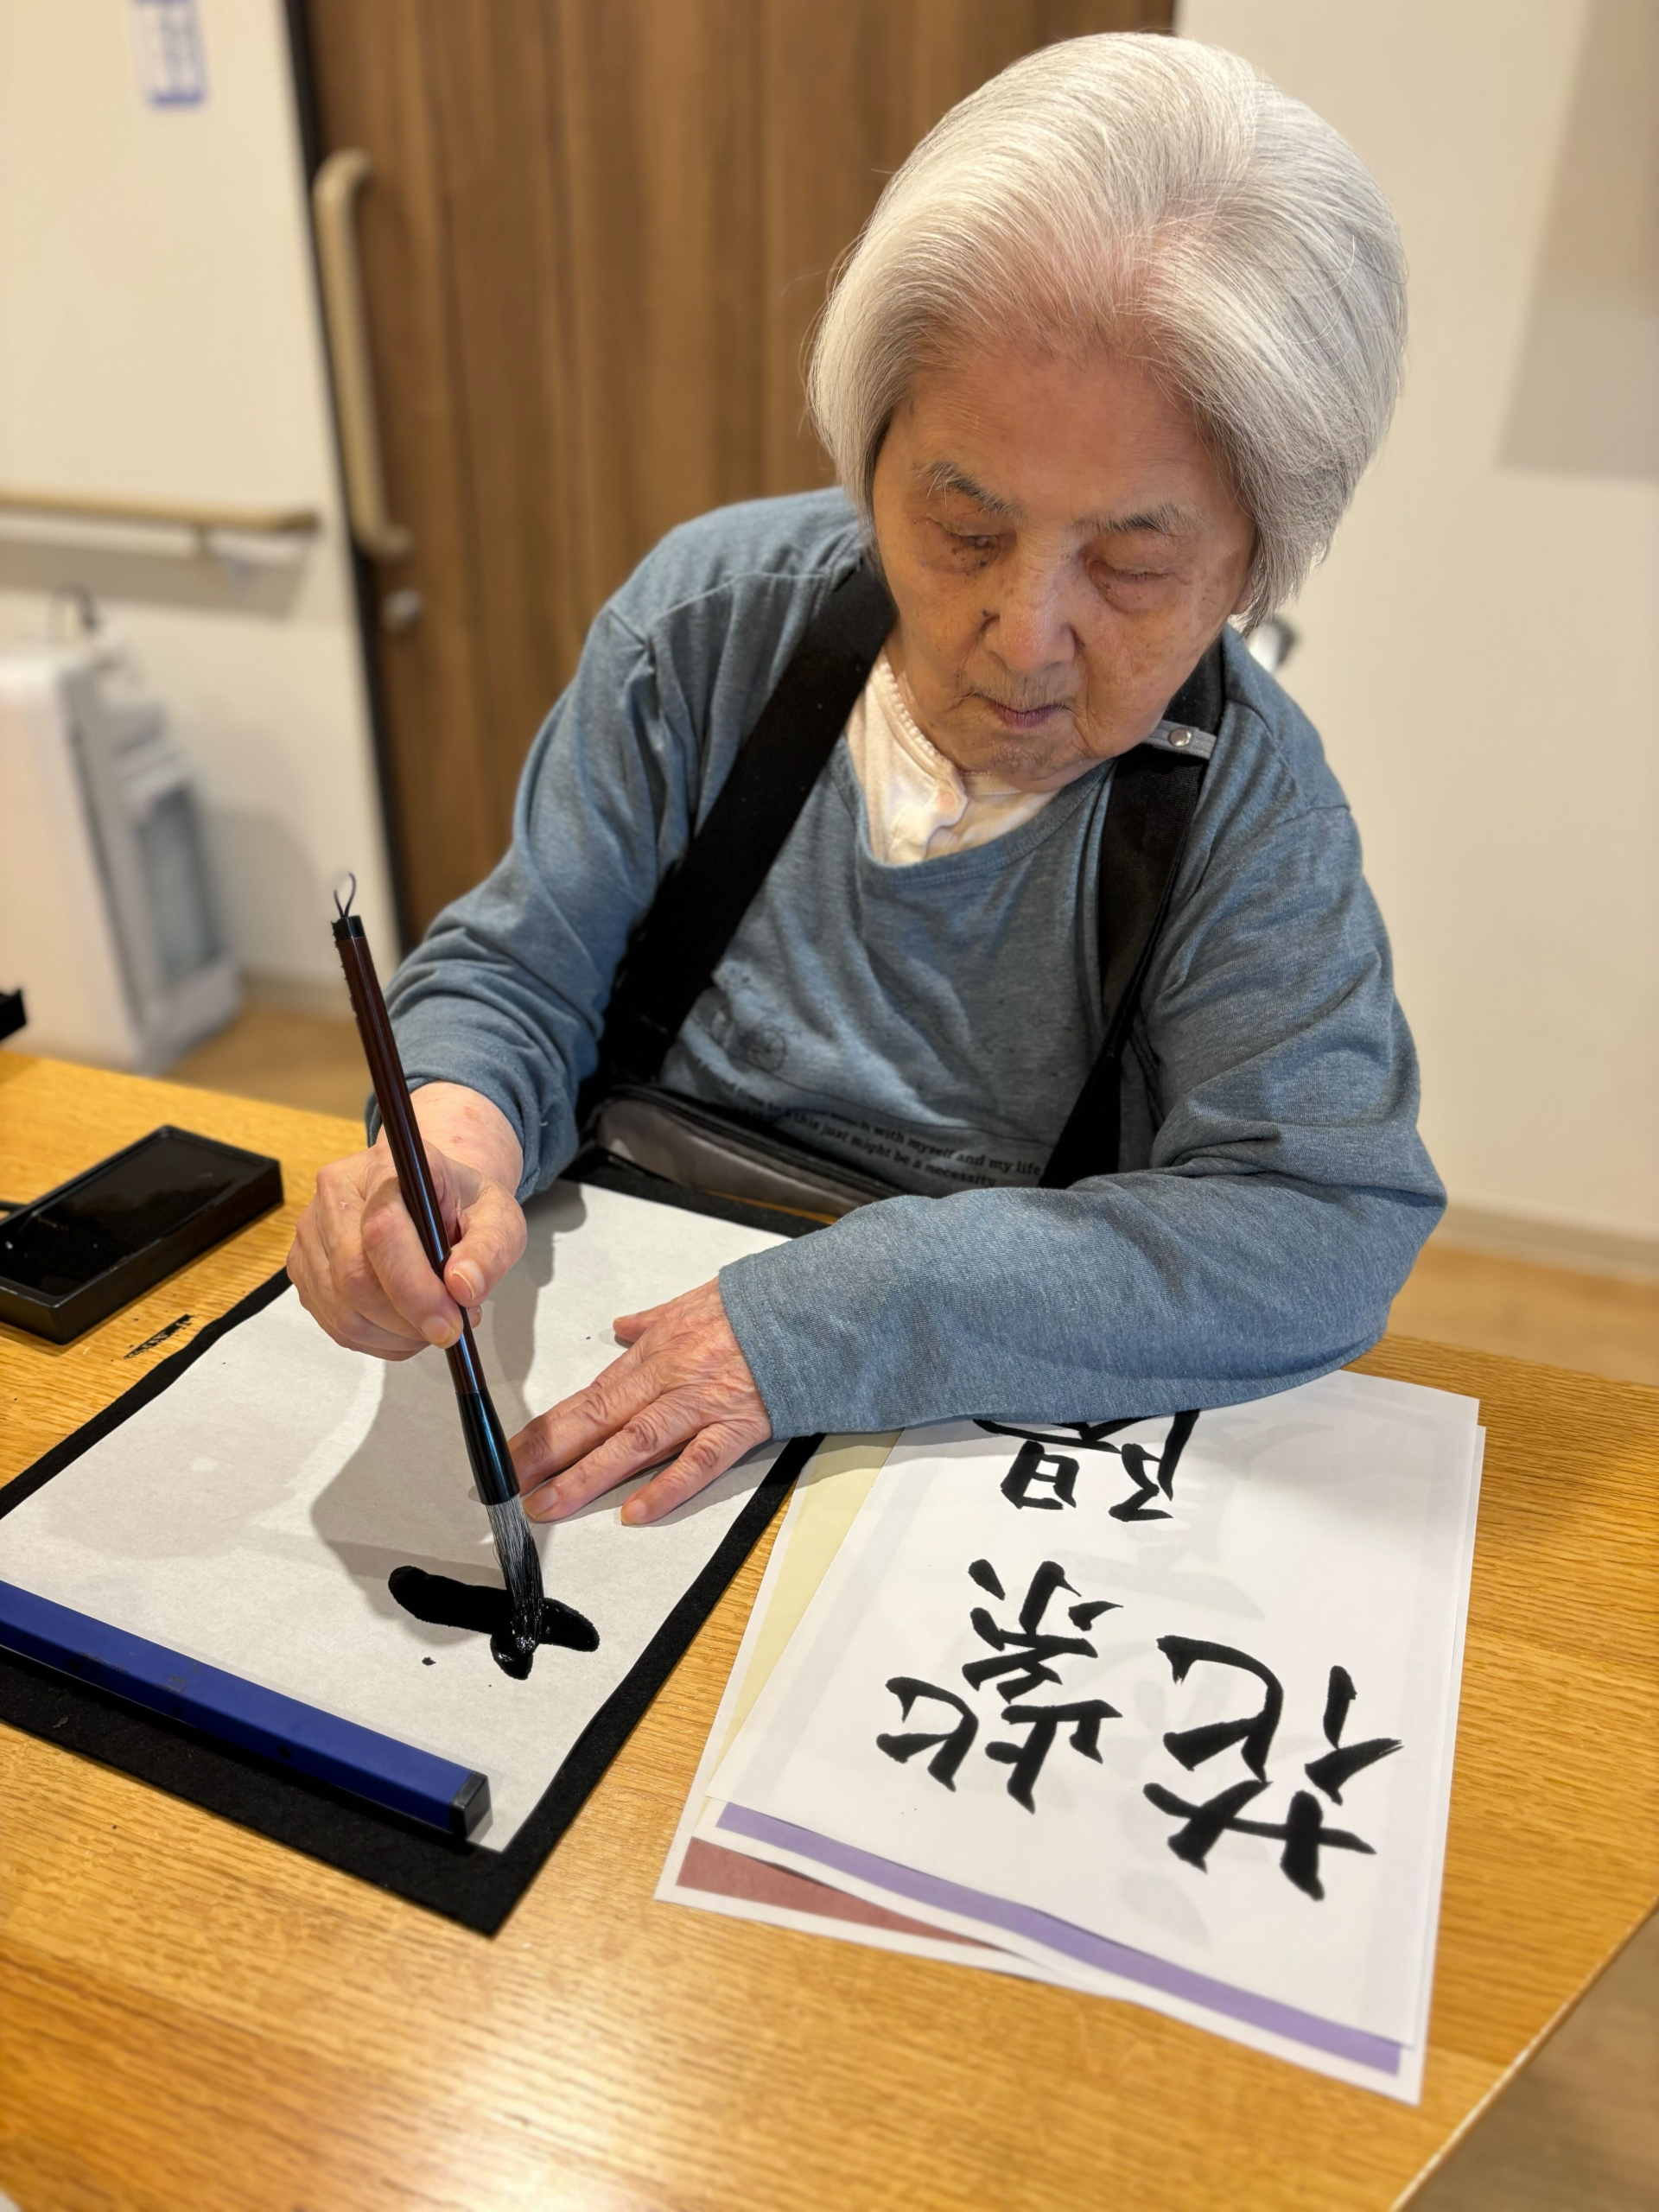 with myself and my life
this just might be a necessity
紫陽
花